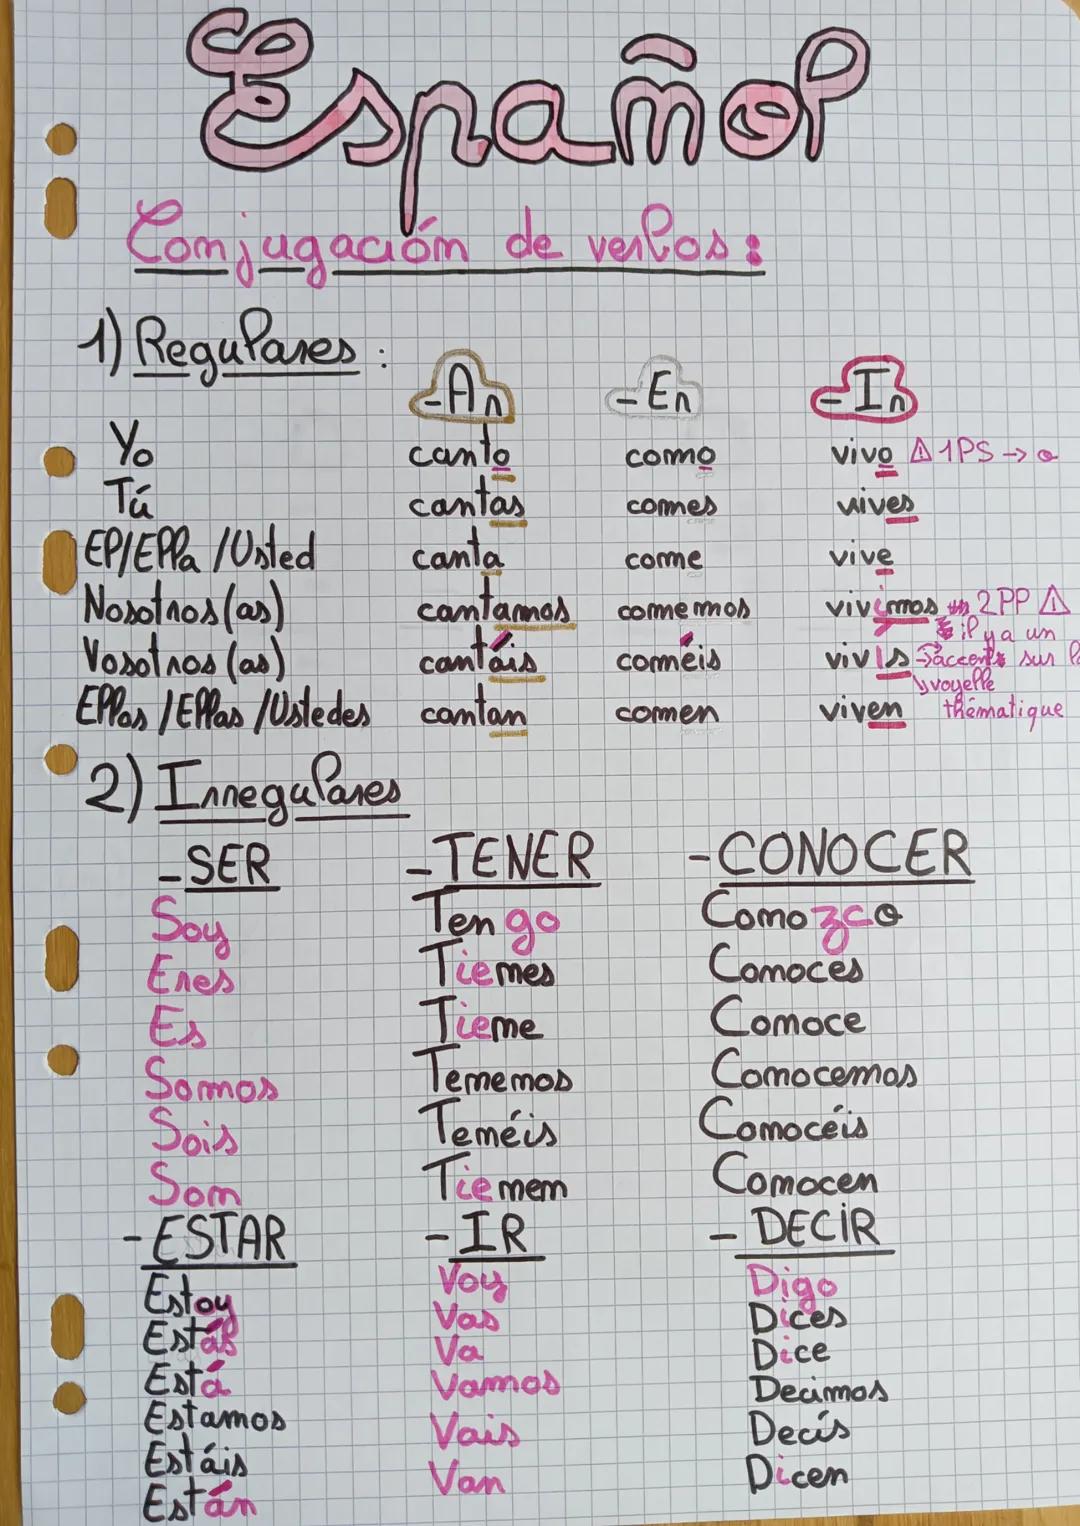 Español
Conjugación de verbos :
1) Regulares :
-Ar -Er -Ir
Yo canto como vivo ⚠ 1PS → o
Tú cantas comes vives
El/Ella /Usted canta come vive
Nosotros (as) cantamos comemos vivimos 2PP ⚠
Vosotros (as) cantáis coméis vivís → il y a un
accent sur la
voyelle
thématique
Ellos /Ellas /Ustedes cantan comen viven
2) Irregulares
-SER -TENER -CONOCER
Soy Tengo Conozco
Eres Tienes Conoces
Es Tiene Conoce
Somos Tenemos Conocemos
Sois Tenéis Conocéis
Son Tienen Conocen
-ESTAR -IR -DECIR
Estoy Voy Digo
Estás Vas Dices
Está Va Dice
Estamos Vamos Decimos
Estáis Vais Decís
Están Van Dicen